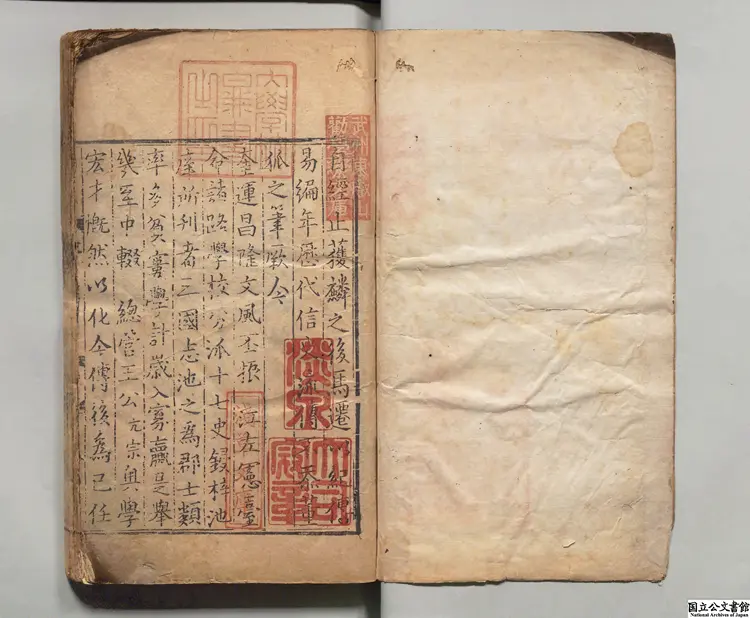 自經止獲麟之後馬遷紀傳
易編年歷代信史
狐之筆厥今
奎運昌隆文風丕振 江左憲臺
命諸路學校分派十七史鋟梓池
庠所刊者三國志池之爲郡士類
率多窶學計歲入寡贏是舉
幾至中輟 總管王公亢宗興學
宏才慨然以化今傳後爲己任
国立公文書館
National Archives of Japan